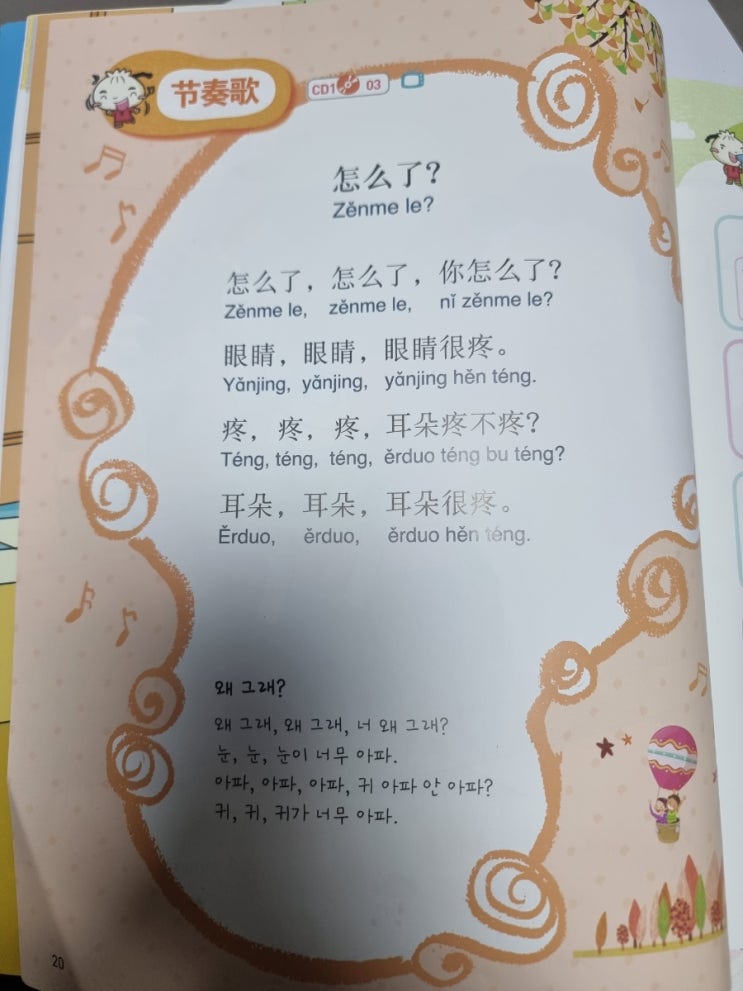 节奏歌
CD1 03
怎么了?
Zěnme le?
怎么了，怎么了，你怎么了?
Zěnme le, zěnme le, nǐ zěnme le?
眼睛，眼睛，眼睛很疼。
Yǎnjing, yǎnjing, yǎnjing hěn téng.
疼，疼，疼，耳朵疼不疼?
Téng, téng, téng, ěrduo téng bu téng?
耳朵，耳朵，耳朵很疼。
Ěrduo, ěrduo, ěrduo hěn téng.
왜 그래?
왜 그래, 왜 그래, 너 왜 그래?
눈, 눈, 눈이 너무 아파.
아파, 아파, 아파, 귀 아파 안 아파?
귀, 귀, 귀가 너무 아파.
20